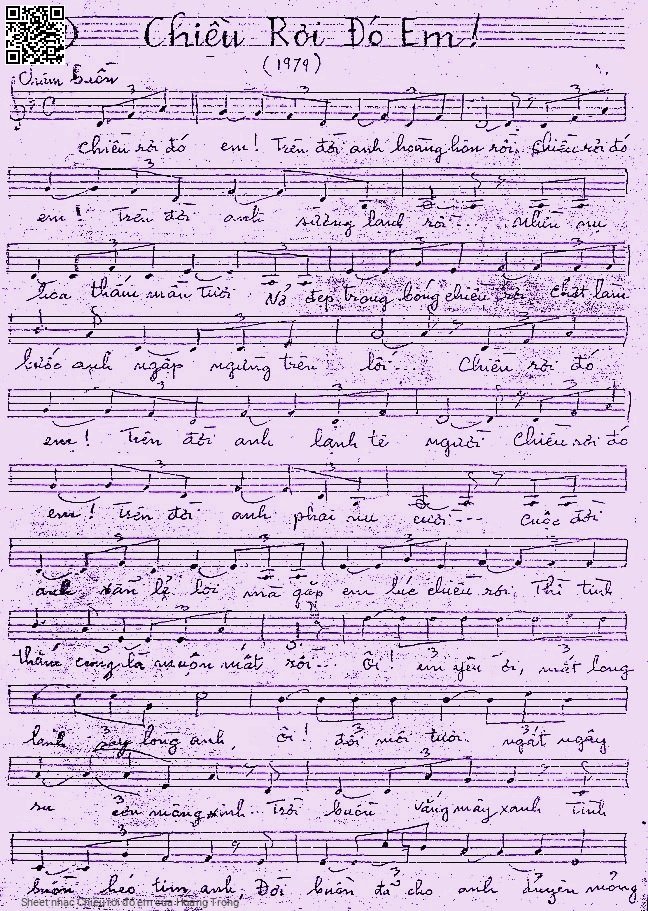 Chiều Rơi Đó Em!
(1979)
Chậm buồn
Chiều rơi đó em! Trên đồi anh hoàng hôn rồi. Chiều rơi đó
em! Trên đồi anh sương lạnh rơi.... nhìn nụ
hoa thắm mãn tươi Nở đẹp trong bóng chiều rơi Chợt làm
bước anh ngập ngừng trên lối.... Chiều rơi đó
em! Trên đồi anh lạnh tê người Chiều rơi đó
em! Trên đồi anh phai nụ cười.... Cuộc đời
anh vẫn lẻ loi mà gặp em lúc chiều rơi. Thì tình
thắm cũng là muộn mất rồi... Ôi! em yêu ơi, mắt long
lanh say lòng anh, ôi! đôi môi tươi ngất ngây
ru cơn mộng xinh... Trời buồn vắng mây xanh Tình
buồn héo tim anh, Đời buồn đã cho anh duyên mỏng
Sheet nhạc Chiều rơi đó em của Hoàng Trọng